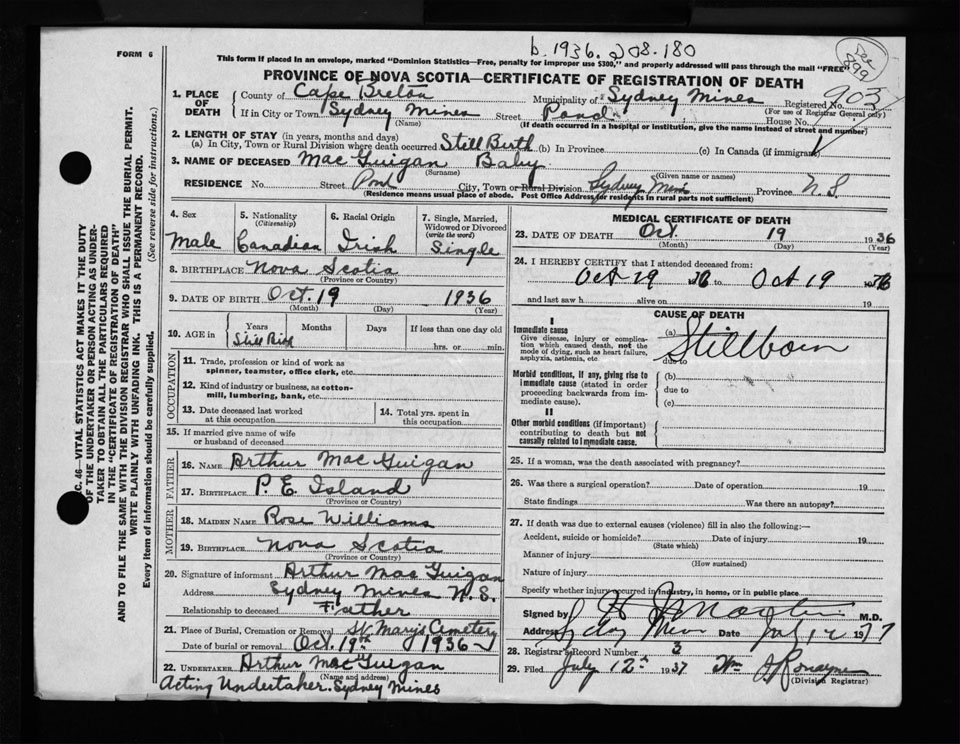 b. 1936. 208.180
See 899
FORM 6
This form if placed in an envelope, marked "Dominion Statistics—Free, penalty for improper use $300," and properly addressed will pass through the mail "FREE"
PROVINCE OF NOVA SCOTIA—CERTIFICATE OF REGISTRATION OF DEATH
903
1. PLACE OF DEATH
County of Cape Breton Municipality of Sydney Mines Registered No.
(For use of Registrar General only)
If in City or Town Sydney Mines Street Pond House No.
(Name) (If death occurred in a hospital or institution, give the name instead of street and number)
2. LENGTH OF STAY (in years, months and days)
(a) In City, Town or Rural Division where death occurred Still Birth (b) In Province (c) In Canada (if immigrant)
3. NAME OF DECEASED Mac Guigan Baby
(Surname) (Given name or names)
RESIDENCE No. Street Pond City, Town or Rural Division Sydney Mines Province N.S.
(Residence means usual place of abode. Post Office Address for residents in rural parts not sufficient)
4. Sex
Male
5. Nationality
(Citizenship)
Canadian
6. Racial Origin
Irish
7. Single, Married, Widowed or Divorced
(write the word)
Single
8. BIRTHPLACE Nova Scotia
(Province or Country)
9. DATE OF BIRTH Oct. 19 1936
(Month) (Day) (Year)
10. AGE in Years Months Days If less than one day old
Still Birth hrs. or min.
OCCUPATION
11. Trade, profession or kind of work as spinner, teamster, office clerk, etc.
12. Kind of industry or business, as cotton-mill, lumbering, bank, etc.
13. Date deceased last worked at this occupation
14. Total yrs. spent in this occupation
15. If married give name of wife or husband of deceased
FATHER
16. NAME Arthur Mac Guigan
17. BIRTHPLACE P. E. Island
(Province or Country)
MOTHER
18. MAIDEN NAME Rose Williams
19. BIRTHPLACE Nova Scotia
(Province or Country)
20. Signature of informant Arthur Mac Guigan
Address Sydney Mines N.S.
Relationship to deceased Father
21. Place of Burial, Cremation or Removal St. Marys Cemetery
Date of burial or removal Oct. 19th 1936
22. UNDERTAKER Arthur Mac Guigan
(Name and address)
Acting Undertaker. Sydney Mines
MEDICAL CERTIFICATE OF DEATH
23. DATE OF DEATH Oct. 19 1936
(Month) (Day) (Year)
24. I HEREBY CERTIFY that I attended deceased from:
Oct 19 36 to Oct 19 1936
and last saw h alive on 19
CAUSE OF DEATH
I
Immediate cause
Give disease, injury or complication which caused death, not the mode of dying, such as heart failure, asphyxia, asthenia, etc.
(a) Stillborn
due to
Morbid conditions, if any, giving rise to immediate cause (stated in order proceeding backwards from immediate cause).
(b)
due to
(c)
II
Other morbid conditions (if important) contributing to death but not causally related to immediate cause.
25. If a woman, was the death associated with pregnancy?
26. Was there a surgical operation? Date of operation 19
State findings Was there an autopsy?
27. If death was due to external causes (violence) fill in also the following:—
Accident, suicide or homicide? Date of injury 19
(State which)
Manner of injury
(How sustained)
Nature of injury
Specify whether injury occurred in industry, in home, or in public place
Signed by M.D.
Address Sydney Mines Date July 12 1937
28. Registrar's Record Number 3
29. Filed July 12th 1937 Wm A. Ronayne
(Division Registrar)
C. 46—VITAL STATISTICS ACT MAKES IT THE DUTY
OF THE UNDERTAKER OR PERSON ACTING AS UNDER-
TAKER TO OBTAIN ALL THE PARTICULARS REQUIRED
IN THE "CERTIFICATE OF REGISTRATION OF DEATH"
AND TO FILE THE SAME WITH THE DIVISION REGISTRAR WHO SHALL ISSUE THE BURIAL PERMIT.
WRITE PLAINLY WITH UNFADING INK. THIS IS A PERMANENT RECORD.
Every item of information should be carefully supplied. (See reverse side for instructions.)